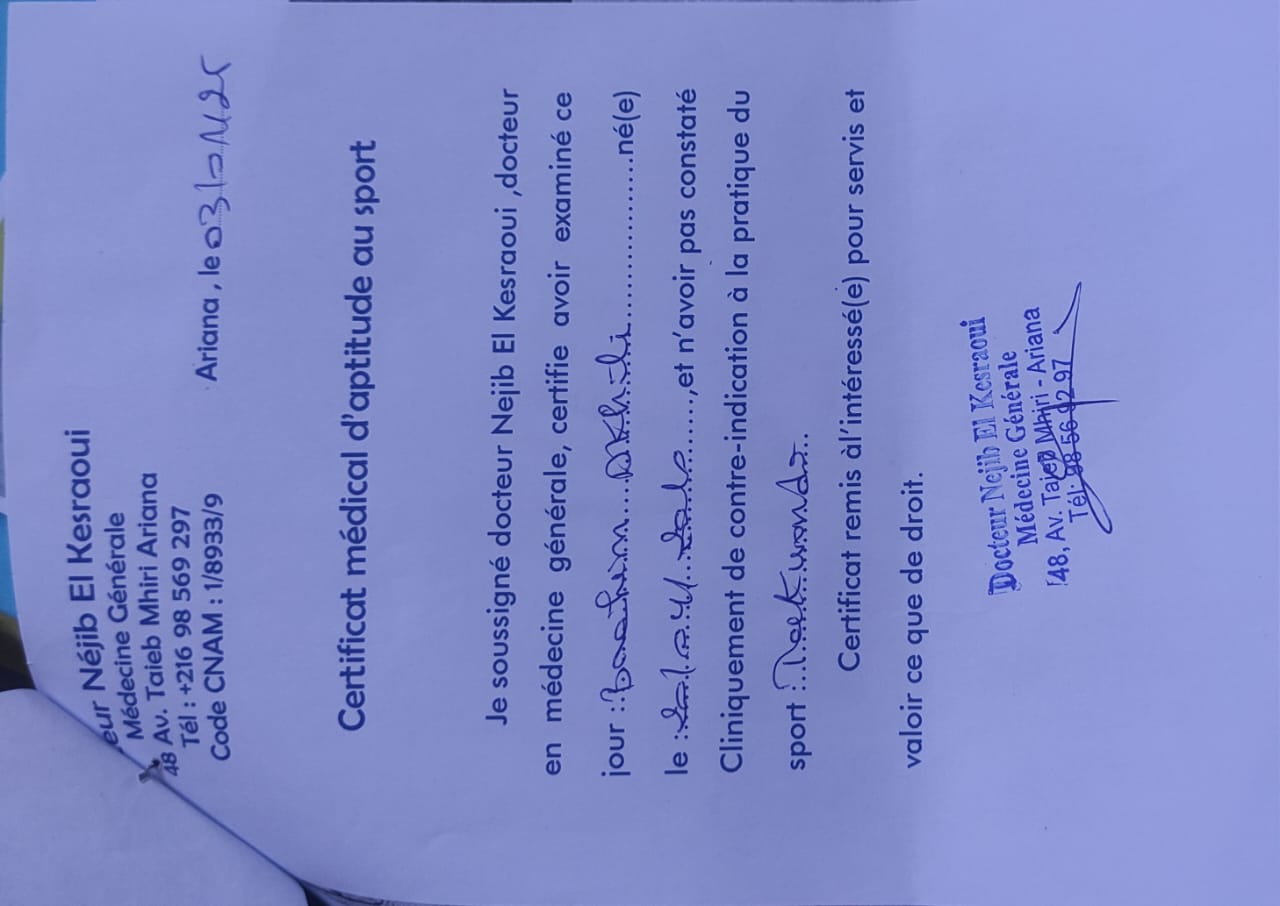 eur Néjib El Kesraoui
Médecine Générale
48 Av. Taieb Mhiri Ariana
Tél : +216 98 569 297
Code CNAM : 1/8933/9
Ariana , le
Certificat médical d'aptitude au sport
Je soussigné docteur Nejib El Kesraoui ,docteur
en médecine générale, certifie avoir examiné ce
jour : né(e)
le : ,et n'avoir pas constaté
Cliniquement de contre-indication à la pratique du
sport :
Certificat remis àl'intéressé(e) pour servis et
valoir ce que de droit.
Docteur Nejib El Kesraoui
Médecine Générale
48, Av. Taieb Mhiri - Ariana
Tél: 98 56 92 97